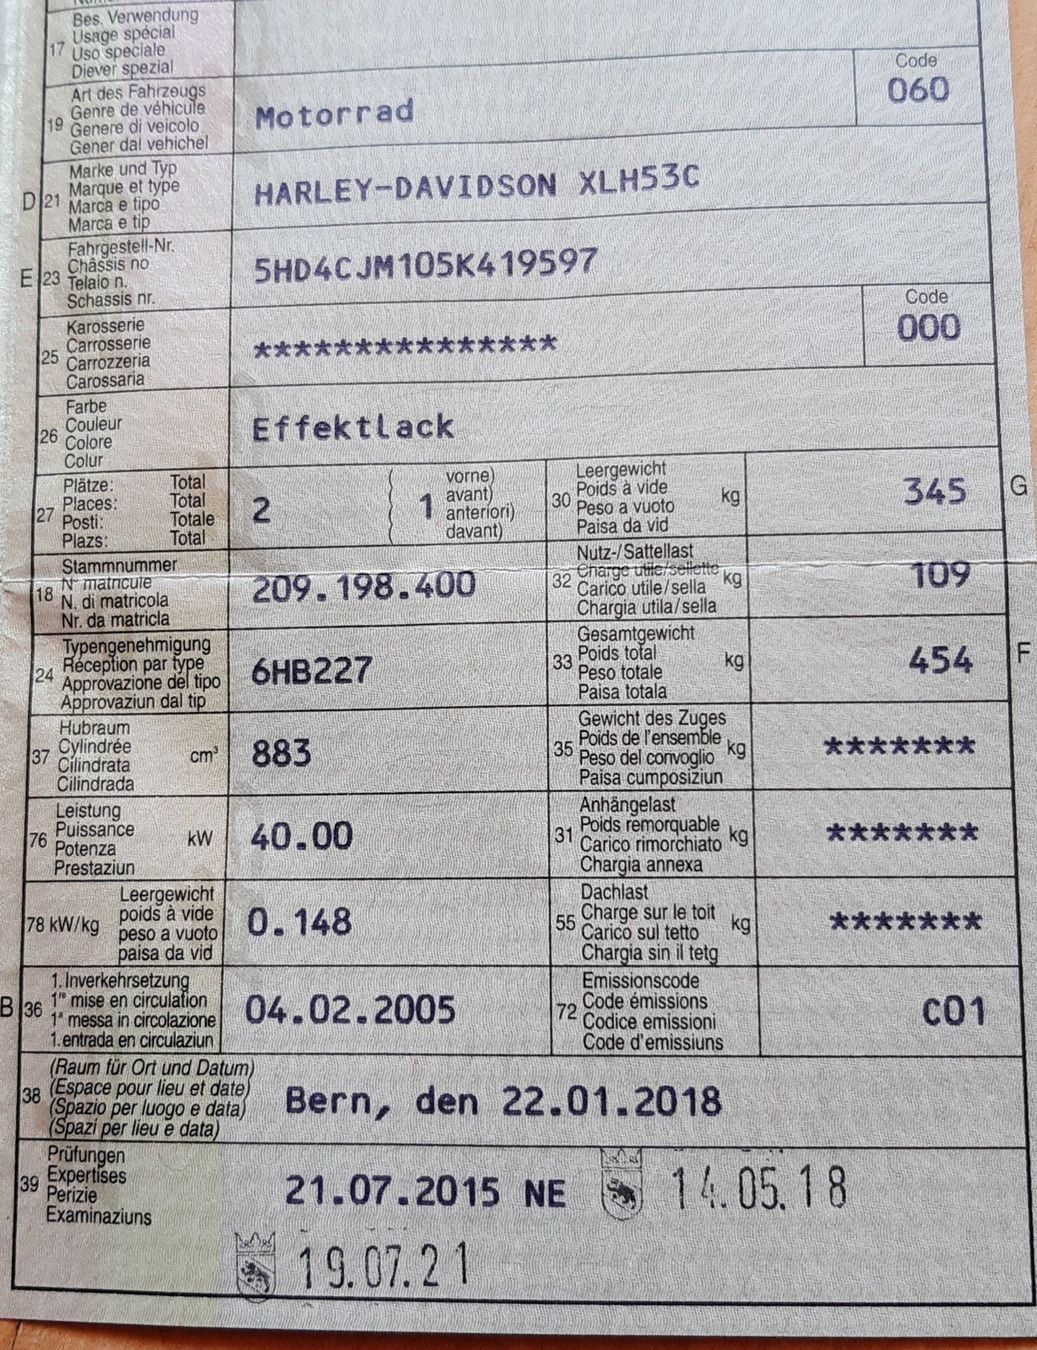 17 Bes. Verwendung
Usage spécial
Uso speciale
Diever spezial
19 Art des Fahrzeugs
Genre de véhicule
Genere di veicolo
Gener dal vehichel
Motorrad
Code
060
D 21 Marke und Typ
Marque et type
Marca e tipo
Marca e tip
HARLEY-DAVIDSON XLH53C
E 23 Fahrgestell-Nr.
Châssis no
Telaio n.
Schassis nr.
5HD4CJM105K419597
25 Karosserie
Carrosserie
Carrozzeria
Carossaria
***************
Code
000
26 Farbe
Couleur
Colore
Colur
Effektlack
27 Plätze: Total
Places: Total
Posti: Totale
Plazs: Total
2
( 1 vorne)
( avant)
( anteriori)
( davant)
30 Leergewicht
Poids à vide
Peso a vuoto
Paisa da vid
kg
345
G
18 Stammnummer
N° matricule
N. di matricola
Nr. da matricla
209.198.400
32 Nutz-/Sattellast
Charge utile/sellette
Carico utile/sella
Chargia utila/sella
kg
109
24 Typengenehmigung
Réception par type
Approvazione del tipo
Approvaziun dal tip
6HB227
33 Gesamtgewicht
Poids total
Peso totale
Paisa totala
kg
454
F
37 Hubraum
Cylindrée
Cilindrata
Cilindrada
cm³
883
35 Gewicht des Zuges
Poids de l'ensemble
Peso del convoglio
Paisa cumposiziun
kg
*******
76 Leistung
Puissance
Potenza
Prestaziun
kW
40.00
31 Anhängelast
Poids remorquable
Carico rimorchiato
Chargia annexa
kg
*******
78 kW/kg
Leergewicht
poids à vide
peso a vuoto
paisa da vid
0.148
55 Dachlast
Charge sur le toit
Carico sul tetto
Chargia sin il tetg
kg
*******
B 36 1. Inverkehrsetzung
1re mise en circulation
1a messa in circolazione
1. entrada en circulaziun
04.02.2005
72 Emissionscode
Code émissions
Codice emissioni
Code d'emissiuns
C01
38 (Raum für Ort und Datum)
(Espace pour lieu et date)
(Spazio per luogo e data)
(Spazi per lieu e data)
Bern, den 22.01.2018
39 Prüfungen
Expertises
Perizie
Examinaziuns
21.07.2015 NE 14.05.18
19.07.21